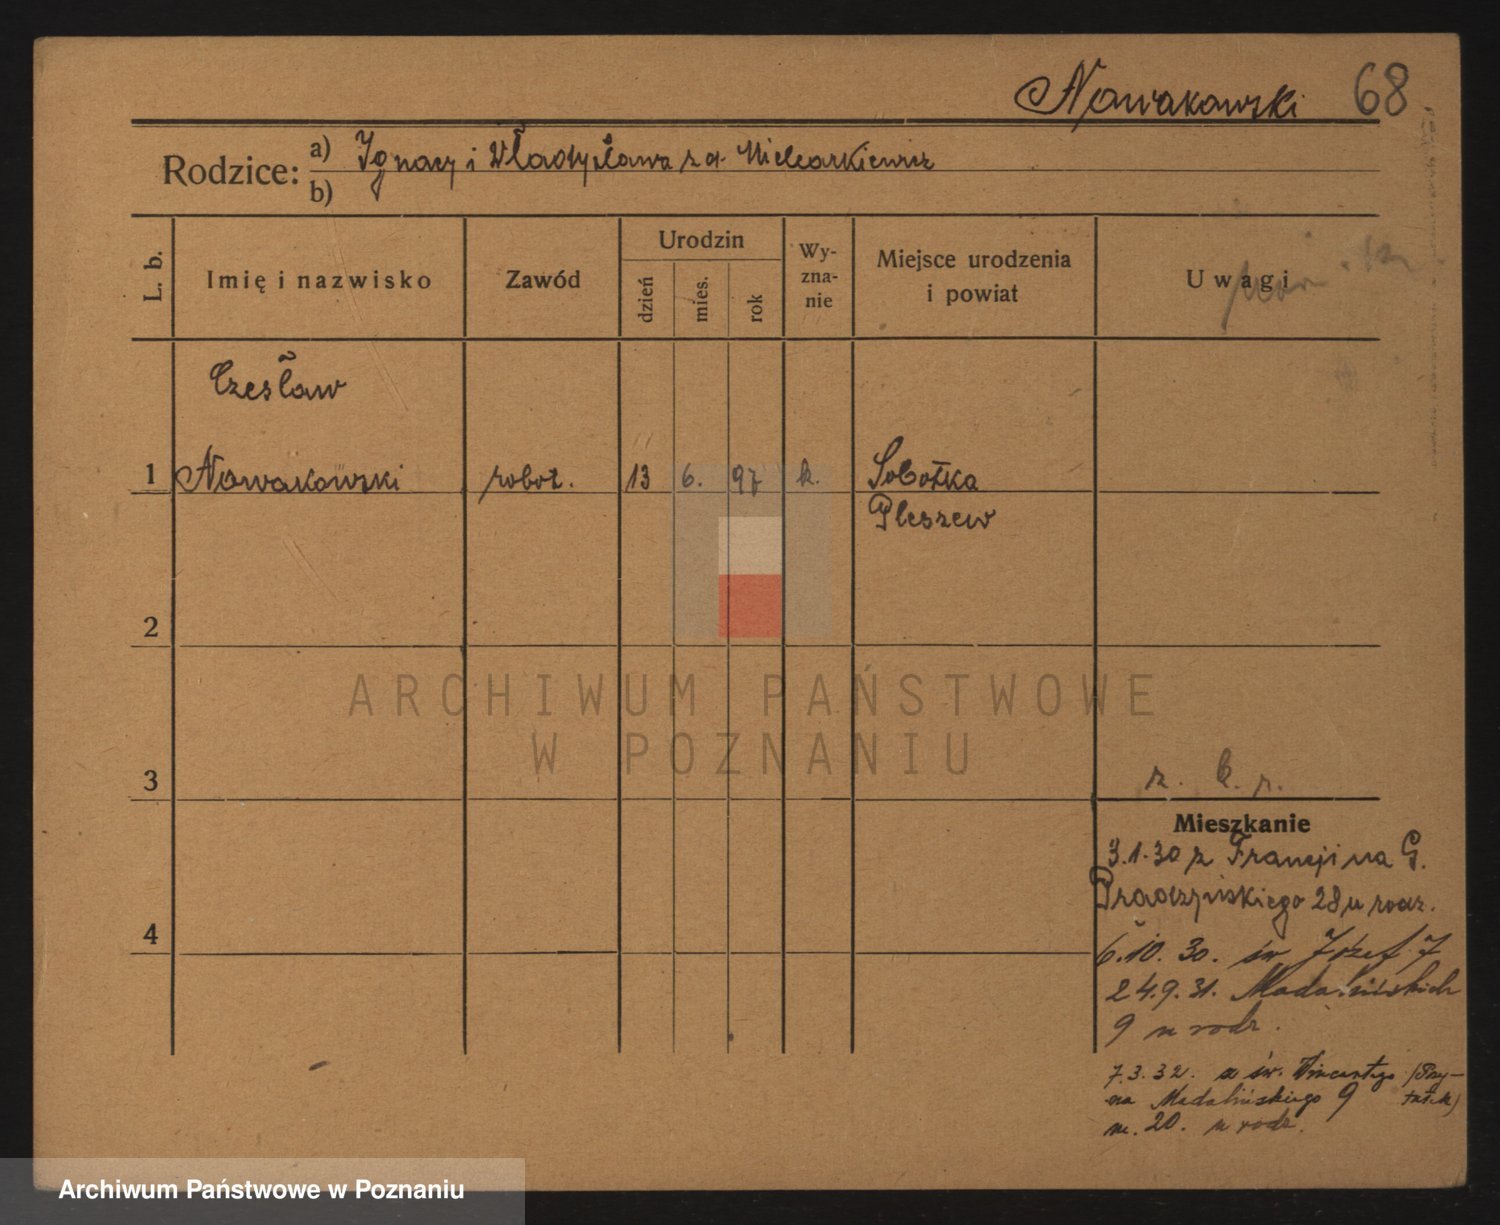 Nowakowski 68
Rodzice:
a) Ignacy i Władysława z d. Mielcarkiewicz
b)
L. b.
Imię i nazwisko
Zawód
Urodzin
dzień
mies.
rok
Wy-
zna-
nie
Miejsce urodzenia
i powiat
Uwagi
Czesław
1 Nowakowski robot. 13 6. 97 k. Sobotka
Pleszew
2
3
z. k. r.
4
Mieszkanie
3.1.30 z Francji na G.
Prądzyńskiego 28 u rodz.
6.10.30. św Józef 7
24.9.31. Madalińskich
9 u rodz.
7.3.32. z św. Wincentego (Przy-
na Madalińskiego 9 tułek)
m. 20. u rodz.
ARCHIWUM PAŃSTWOWE
W POZNANIU
Archiwum Państwowe w Poznaniu